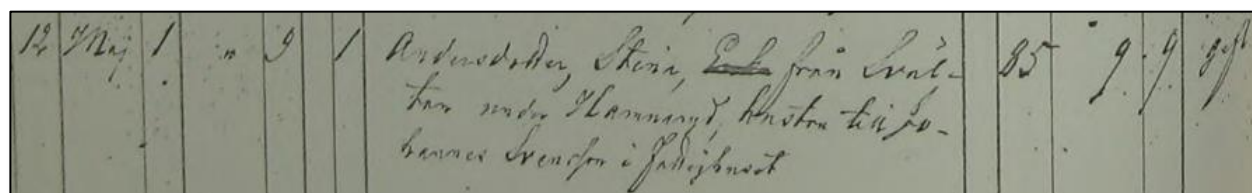 12 Maj 1 " 9 1 Andersdotter, Stina, från Sväl-
ten under Hamnaryd, hustru till Jo-
hannes Svensson i Fattighuset
85 9 9 gift